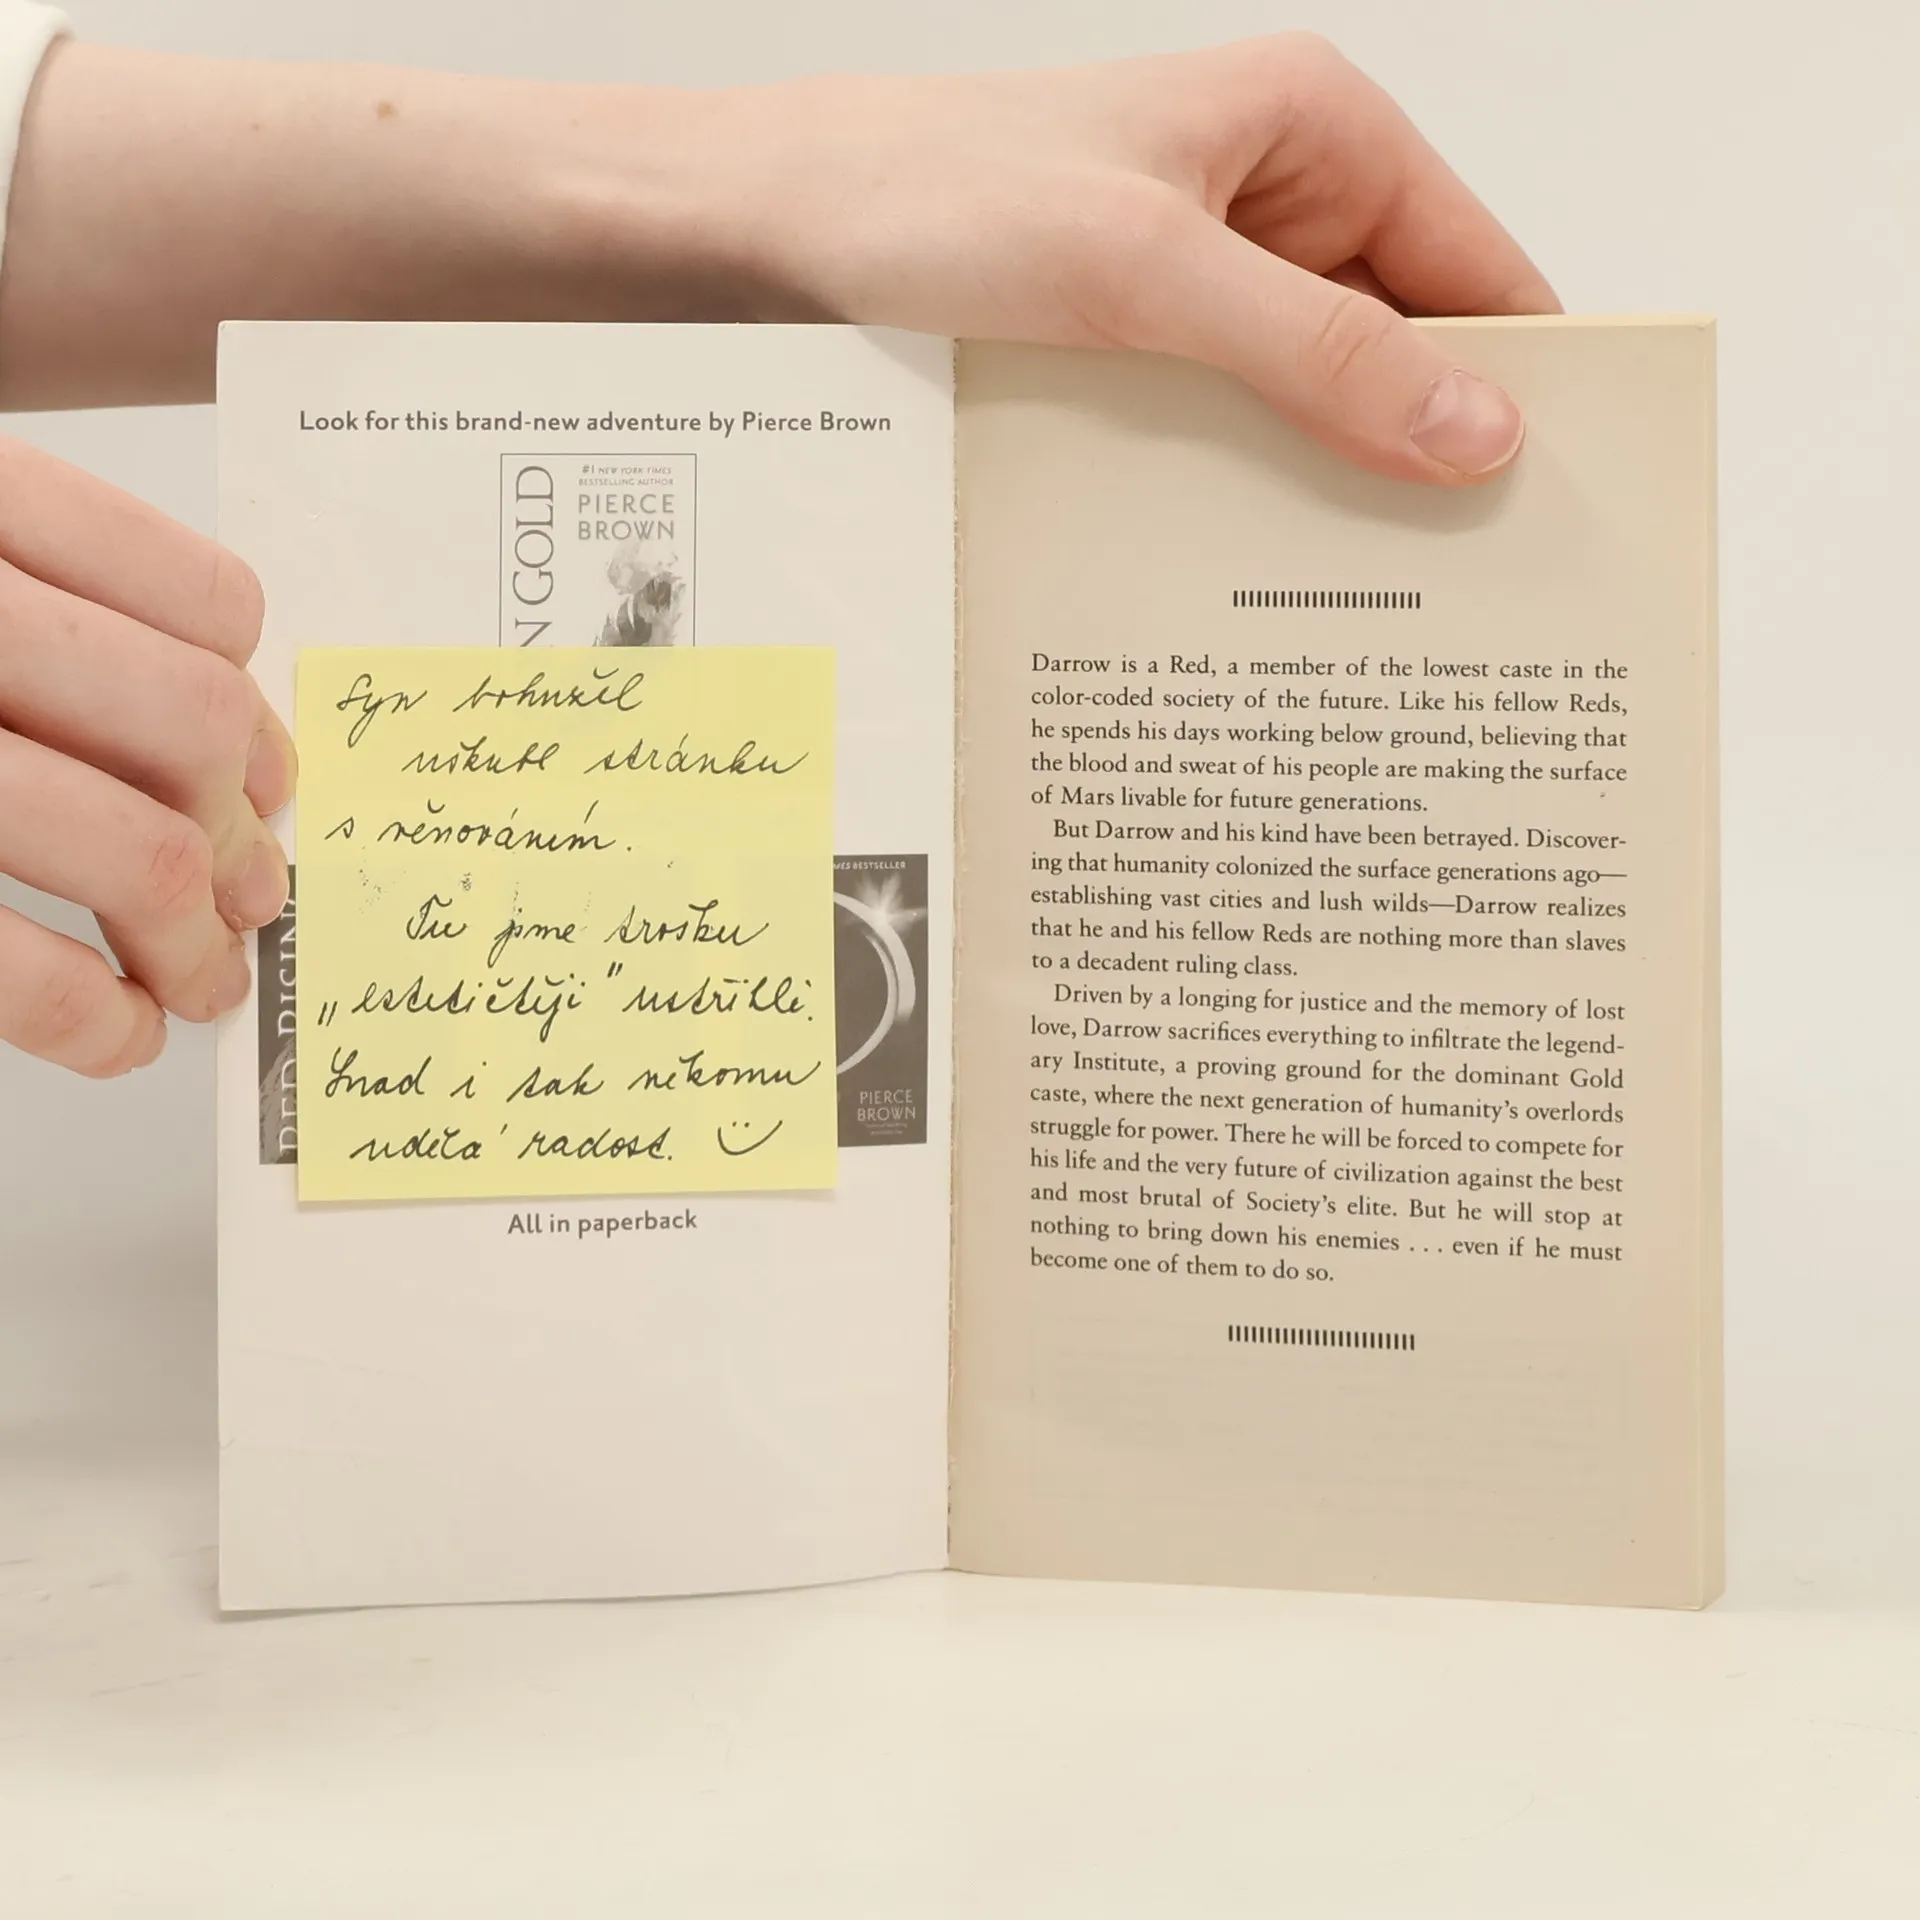 Look for this brand-new adventure by Pierce Brown
GOLD
#1 NEW YORK TIMES
BESTSELLING AUTHOR
PIERCE
BROWN
Syn bohužel
uškubl stránku
s věnováním.
Tu jsme trošku
„estetičtěji" ustřihli.
Snad i tak někomu
udělá radost.
RED RISING
BESTSELLER
PIERCE
BROWN
All in paperback
Darrow is a Red, a member of the lowest caste in the
color-coded society of the future. Like his fellow Reds,
he spends his days working below ground, believing that
the blood and sweat of his people are making the surface
of Mars livable for future generations.
But Darrow and his kind have been betrayed. Discover-
ing that humanity colonized the surface generations ago—
establishing vast cities and lush wilds—Darrow realizes
that he and his fellow Reds are nothing more than slaves
to a decadent ruling class.
Driven by a longing for justice and the memory of lost
love, Darrow sacrifices everything to infiltrate the legend-
ary Institute, a proving ground for the dominant Gold
caste, where the next generation of humanity's overlords
struggle for power. There he will be forced to compete for
his life and the very future of civilization against the best
and most brutal of Society's elite. But he will stop at
nothing to bring down his enemies . . . even if he must
become one of them to do so.